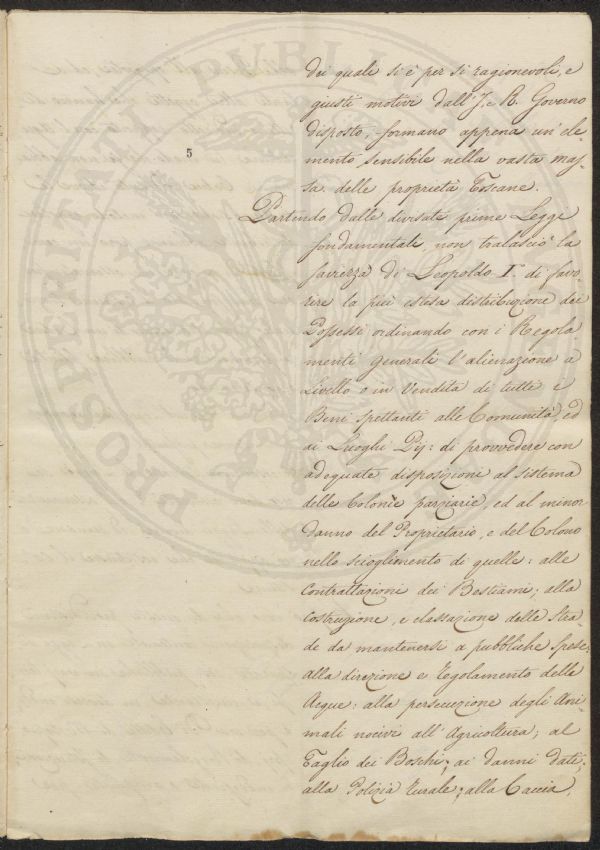 dei quali si è per sì ragionevoli, e
giusti motivi dall'I. e R. Governo
disposto, formano appena un'ele-
mento sensibile nella vasta mas-
sa delle proprietà Toscane.
5
Partendo dalle divisate prime Leggi
fondamentali, non tralasciò la
saviezza di Leopoldo I.º di favo-
rire la più estesa distribuzione dei
Possessi ordinando con i Regola-
menti Generali l'alienazione a
Livello o in Vendita di tutti i
Beni spettanti alle Comunità ed
ai Luoghi Pij: di provvedere con
adequate disposizioni al sistema
delle Colonìe parziarie, ed al minor
danno del Proprietario, e del Colono
nello scioglimento di quelle: alle
Contrattazioni dei Bestiami; alla
Costruzione, e classazione delle Stra-
de da mantenersi a pubbliche spese,
alla direzione e regolamento delle
Acque: alla persecuzione degli Ani-
mali nocivi all'Agricoltura; al
Taglio dei Boschi; ai danni dati;
alla Polizia rurale; alla Caccia,